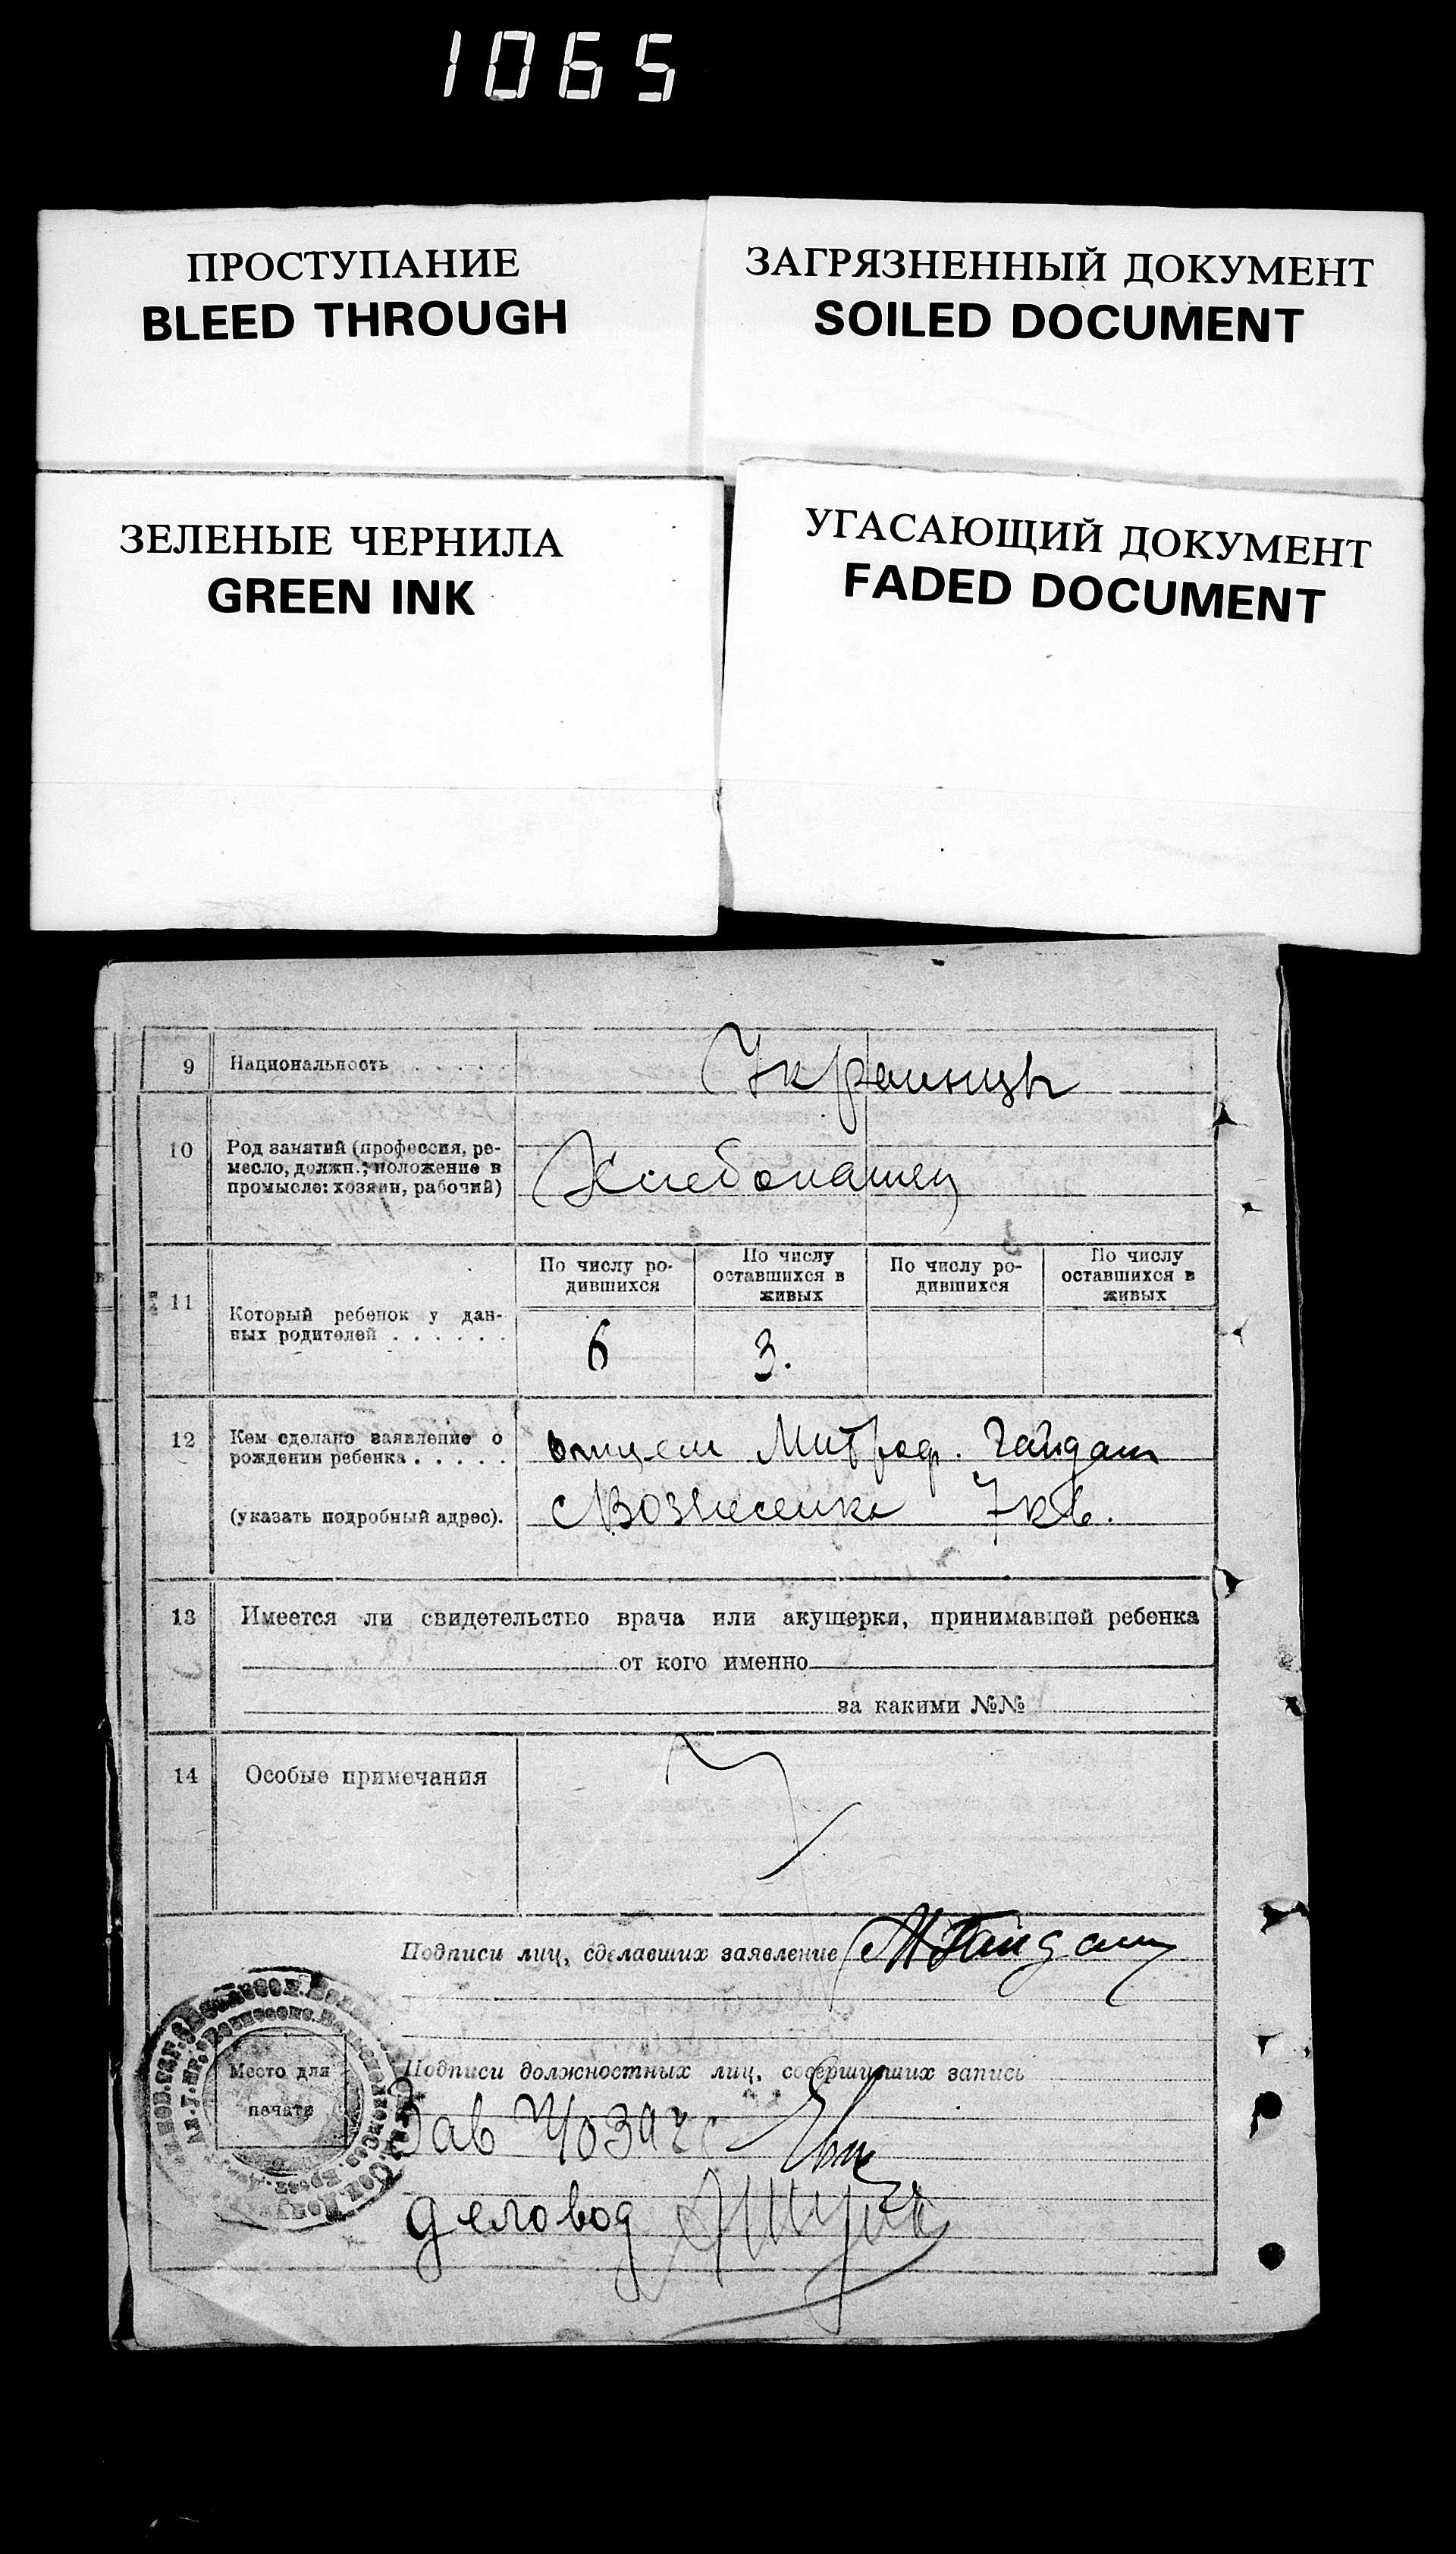 1065
ПРОСТУПАНИЕ
BLEED THROUGH
ЗАГРЯЗНЕННЫЙ ДОКУМЕНТ
SOILED DOCUMENT
ЗЕЛЕНЫЕ ЧЕРНИЛА
GREEN INK
УГАСАЮЩИЙ ДОКУМЕНТ
FADED DOCUMENT
9 Национальность . . . . . Украинцы
10 Род занятий (профессия, ре-
месло, должн.; положение в
промысле: хозяин, рабочий)
Хлебопашец
11 Который ребенок у дан-
ных родителей . . . . . .
По числу ро-
дившихся
По числу
оставшихся в
живых
По числу ро-
дившихся
По числу
оставшихся в
живых
6 3.
12 Кем сделано заявление о
рождении ребенка . . . . .
отцем Митроф. Гайдаш
(указать подробный адрес).
с Вознесенка
13 Имеется ли свидетельство врача или акушерки, принимавшей ребенка
от кого именно
за какими №№
14 Особые примечания
Подписи лиц, сделавших заявление М Гайдаш
Место для
печати
Подписи должностных лиц, совершивших запись
Зав
деловод